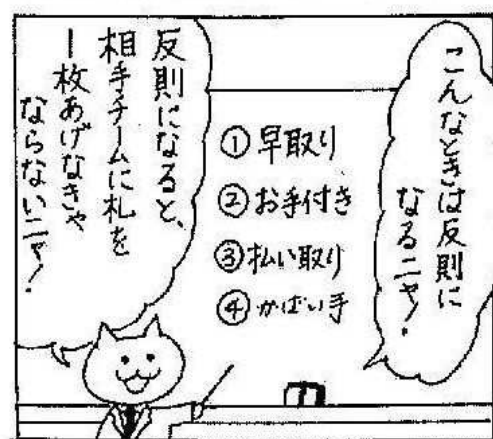 こんなときは反則に
なるニャ！
①早取り
②お手付き
③払い取り
④かばい手
反則になると、
相手チームに札を
一枚あげなきゃ
ならないニャ！